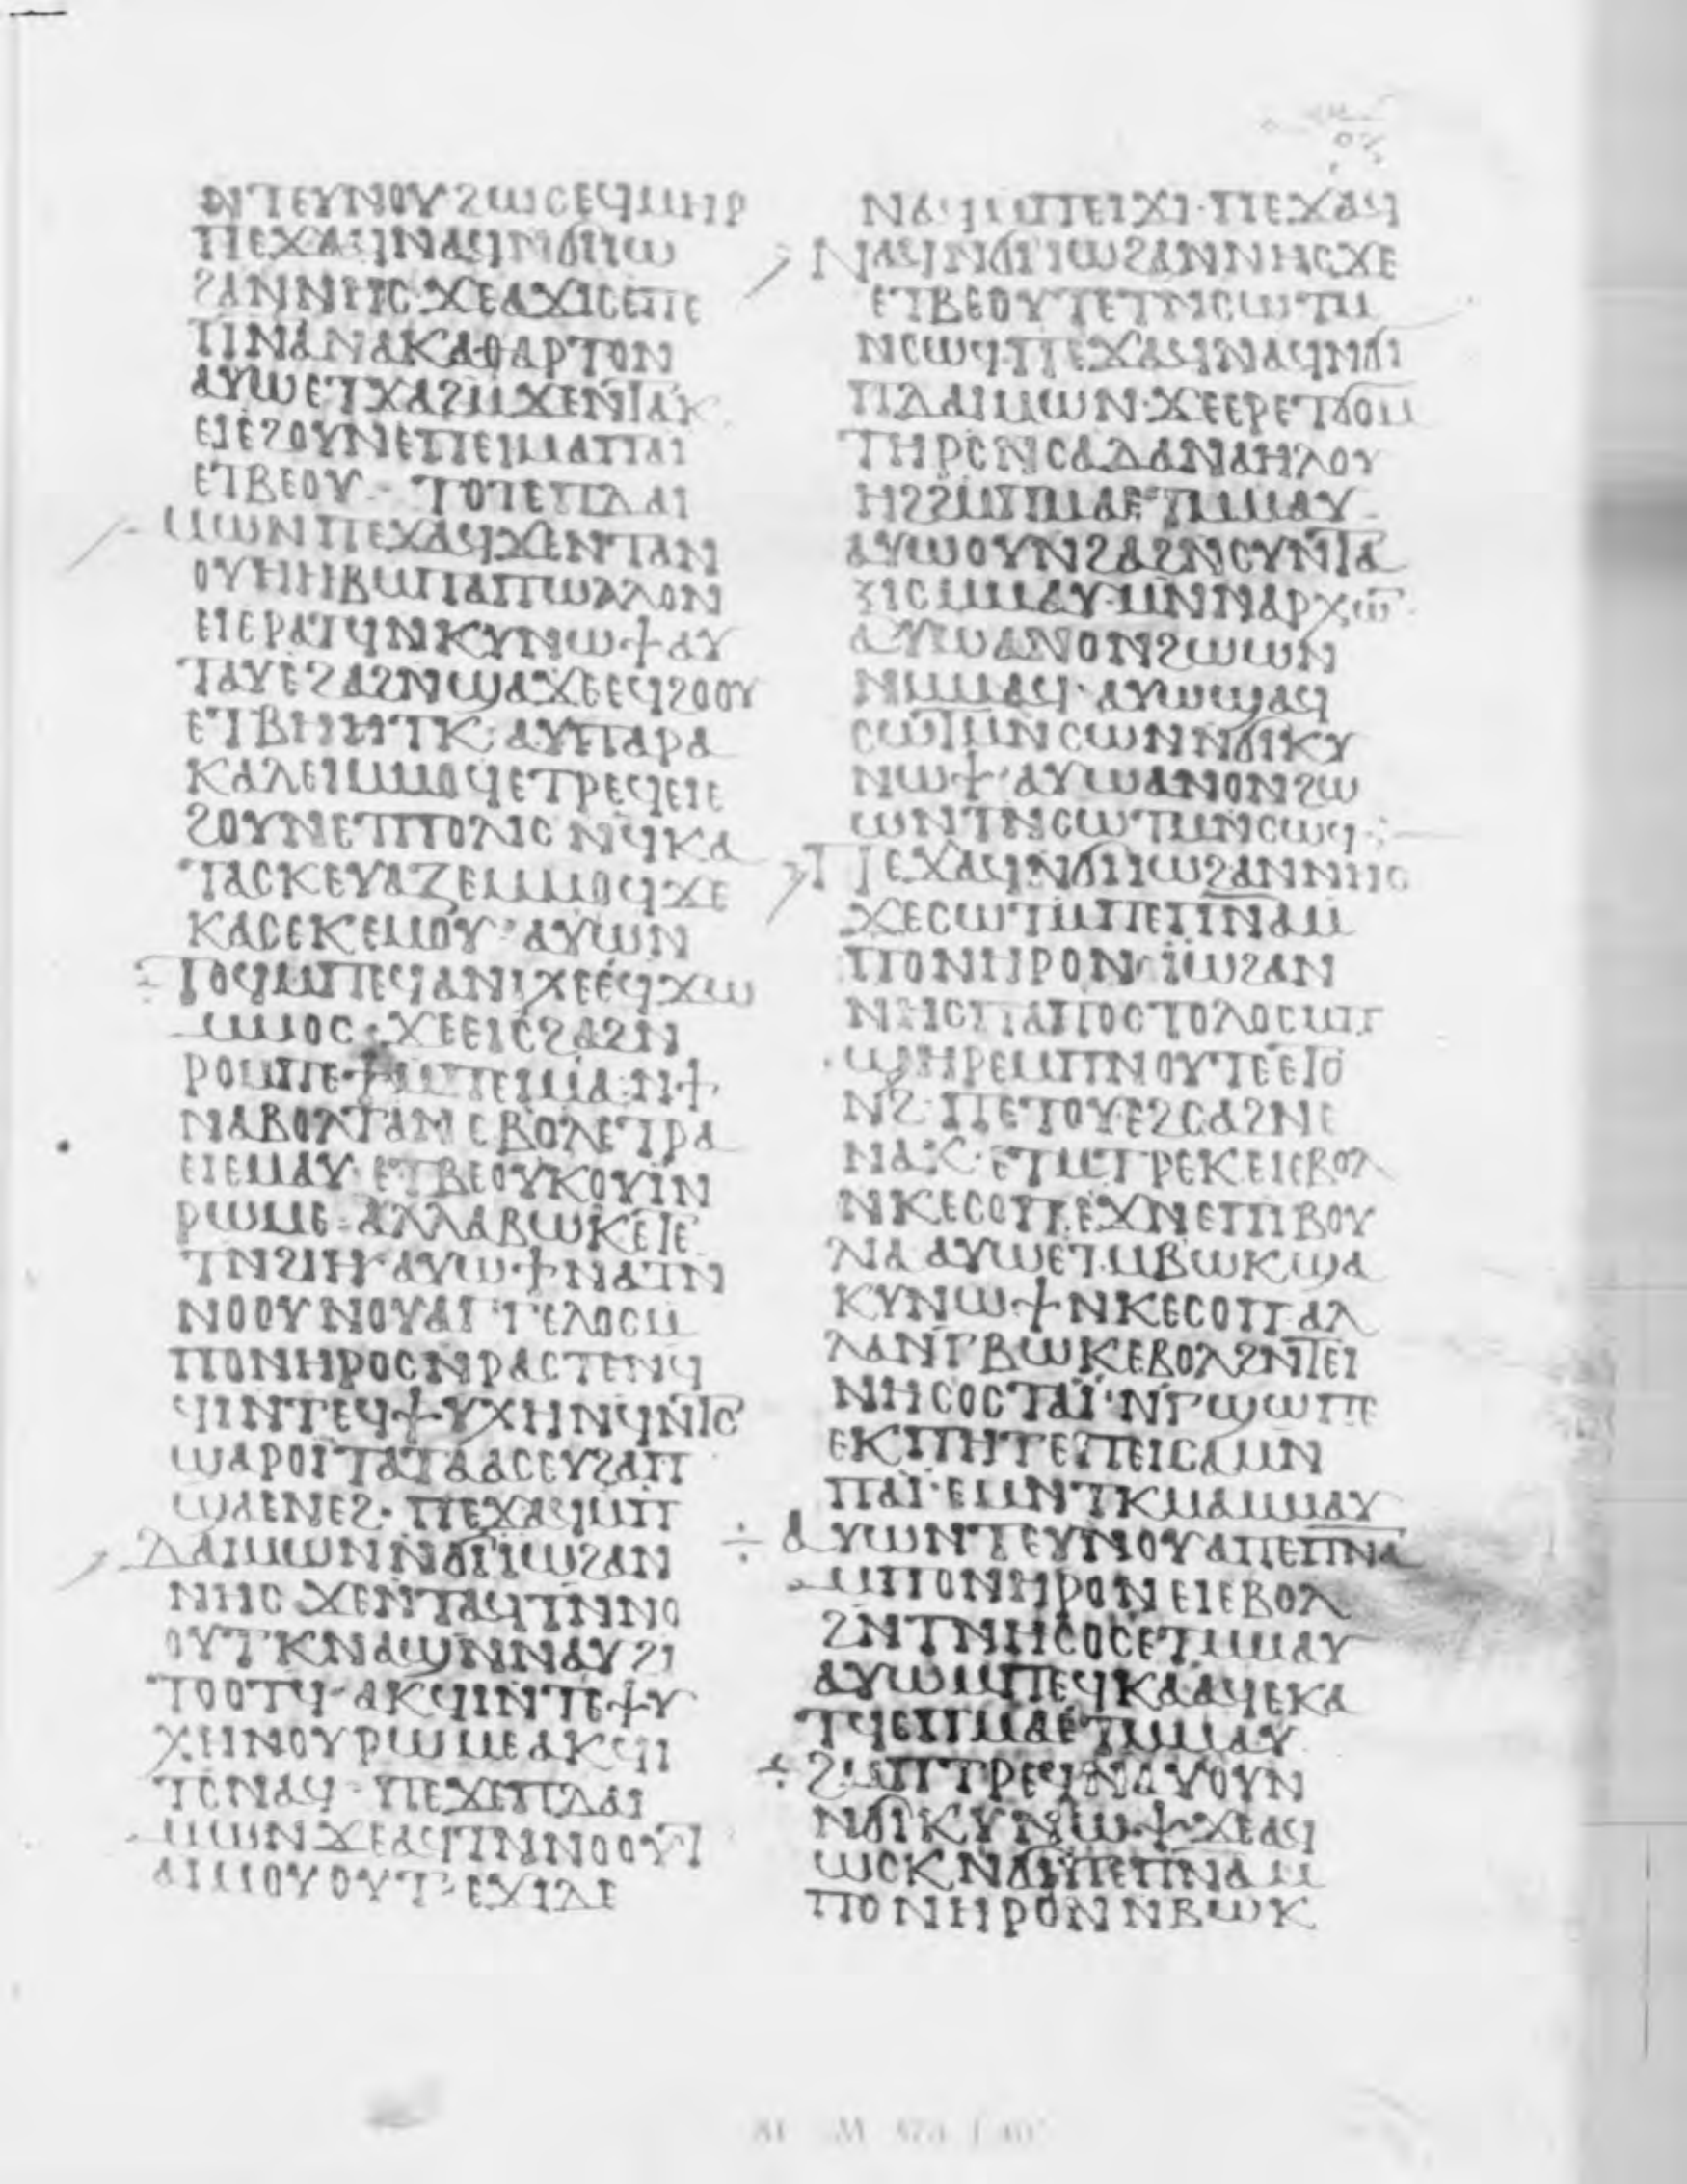 ϨΙΤΕΥΝΟΥϨⲰⲤⲈϤⲘⲎⲢ
ⲠⲈϪⲀϤⲚⲀϤⲚϬⲒⲒⲰ
ϨⲀⲚⲚⲎⲤ·ϪⲈⲀϪⲒⲤⲈⲠⲈ
ⲠⲚⲀⲚⲀⲔⲀⲐⲀⲢⲦⲞⲚ
ⲀⲨⲰⲈⲦϪⲀϨⲘϪⲈⲚⲦⲀⲔ
ⲈⲒⲈϨⲞⲨⲚⲈⲠⲈⲒⲘⲀⲠⲀⲒ
ⲈⲦⲂⲈⲞⲨ· ⲦⲞⲦⲈⲠⲆⲀⲒ
ⲘⲰⲚⲠⲈϪⲀϤϪⲈⲚⲦⲀⲚ
ⲞⲨⲎⲎⲂⲘⲠⲀⲠⲰⲖⲖⲰⲚ
ⲈⲒⲈⲢⲀⲦϤⲚⲔⲨⲚⲰⲮⲀⲨ
ⲦⲀⲨⲈϨⲀϨⲚϢⲀϪⲈⲈϤϨⲞⲞⲨ
ⲈⲦⲂⲎⲎⲦⲔ·ⲀⲨⲠⲀⲢⲀ
ⲔⲀⲖⲈⲒⲘⲘⲞϤⲈⲦⲢⲈϤⲈⲒⲈ
ϨⲞⲨⲚⲈⲦⲠⲞⲖⲒⲤ ⲚϤⲔⲀ
ⲦⲀⲤⲔⲈⲨⲀⲌⲈⲘⲘⲞϤϪⲈ
ⲔⲀⲤⲈⲔⲈⲘⲞⲨ·ⲀⲨⲰⲚ
ⲦⲞϤⲘⲠⲈϤⲀⲚⲒⲬⲈⲈϤϪⲰ
ⲘⲘⲞⲤ·ϪⲈⲈⲒⲤϨⲀϨⲚ
ⲢⲞⲘⲠⲈϮⲘⲠⲈⲒⲘⲀ·ⲚϮ
ⲚⲀⲂⲞⲖⲦⲀⲚⲈⲂⲞⲖⲈⲦⲢⲀ
ⲈⲒⲈⲘⲀⲨ·ⲈⲦⲂⲈⲞⲨⲔⲞⲨⲒⲚ
ⲢⲰⲘⲈ·ⲀⲖⲖⲀⲂⲰⲔⲈⲦⲈ
ⲦⲚϨⲒⲎ·ⲀⲨⲰϮⲚⲀⲦⲚ
ⲚⲞⲞⲨⲚⲞⲨⲀⲄⲄⲈⲖⲞⲤⲘ
ⲠⲞⲚⲎⲢⲞⲤⲚⲢⲀⲤⲦⲈⲚϤ
ϤⲒⲚⲦⲈϤⲮⲨⲬⲎⲚϤⲚⲦⲤ
ϢⲀⲢⲞⲒⲦⲀⲦⲀⲀⲤⲈⲨϨⲀⲠ
ϢⲀⲈⲚⲈϨ·ⲠⲈϪⲀϤⲘⲠ
ⲆⲀⲒⲘⲰⲚⲚϬⲒⲒⲰϨⲀⲚ
ⲚⲎⲤ·ϪⲈⲚⲦⲀϤⲦⲚⲚⲞ
ⲞⲨⲦⲔⲚⲀϢⲚⲚⲀⲨϨⲒ
ⲦⲞⲞⲦϤ·ⲀⲔϤⲒⲚⲦⲈⲮⲨ
ⲬⲎⲚⲞⲨⲢⲰⲘⲈⲀⲔϤⲒ
ⲦⲤⲚⲀϤ·ⲠⲈϪⲈⲠⲆⲀⲒ
ⲘⲰⲚϪⲈⲀϤⲦⲚⲚⲞⲞⲨⲦ
ⲀⲒⲘⲞⲨⲞⲨⲦ·ⲈⲬⲒⲆⲈ
ⲚⲀ·ϤⲒⲠⲈⲒϪⲒ·ⲠⲈϪⲀϤ
ⲚⲀϤⲚϬⲒⲒⲰϨⲀⲚⲚⲎⲤϪⲈ
ⲈⲦⲂⲈⲞⲨⲦⲈⲦⲚⲤⲰⲦⲘ
ⲚⲤⲰϤ·ⲠⲈϪⲀϤⲚⲀϤⲚϬⲒ
ⲠⲆⲀⲒⲘⲰⲚ·ϪⲈⲈⲢⲈⲦϬⲞⲘ
ⲦⲎⲢⲤⲚⲤⲀⲆⲀⲚⲀⲎⲖⲞⲨ
ⲎϨϨⲘⲠⲘⲀⲈⲦⲘⲘⲀⲨ·
ⲀⲨⲰⲞⲨⲚϨⲀϨⲚⲤⲨⲚⲦⲀ
ⲜⲒⲤⲘⲘⲀⲨ·ⲘⲚⲚⲀⲢⲬⲰ
ⲀⲨⲰⲀⲚⲞⲚϨⲰⲰⲚ
ⲚⲘⲘⲀϤ·ⲀⲨⲰϢⲀϤ
ⲤⲰⲦⲘⲚⲤⲰⲚⲚϬⲒⲔⲨ
ⲚⲰⲮ·ⲀⲨⲰⲀⲚⲞⲚϨⲰ
ⲰⲚⲦⲚⲤⲰⲦⲘⲚⲤⲰϤ·
ⲠⲈϪⲀϤⲚϬⲒⲒⲰϨⲀⲚⲚⲎⲤ
ϪⲈⲤⲰⲦⲘⲠⲈⲠⲚⲀⲘ
ⲠⲞⲚⲎⲢⲞⲚ·ⲒⲰϨⲀⲚ
ⲚⲎⲤⲠⲀⲠⲞⲤⲦⲞⲖⲞⲤⲘⲠ
ϢⲎⲢⲈⲘⲠⲚⲞⲨⲦⲈⲈⲦⲞ
ⲚϨ·ⲠⲈⲦⲞⲨⲈϨⲤⲀϨⲚⲈ
ⲚⲀⲔ·ⲈⲦⲘⲦⲢⲈⲔⲈⲒⲈⲂⲞⲖ
ⲚⲔⲈⲤⲞⲠ·ⲈϪⲚⲈⲠⲒⲂⲞⲨ
ⲖⲎ ⲀⲨⲰⲈⲦⲘⲂⲰⲔϢⲀ
ⲔⲨⲚⲰⲮⲚⲔⲈⲤⲞⲠ·ⲀⲖ
ⲖⲀⲚⲄⲂⲰⲔⲈⲂⲞⲖϨⲚⲦⲈⲒ
ⲚⲎⲤⲞⲤⲦⲀⲒ·ⲚⲄϢⲰⲠⲈ
ⲈⲔⲠⲎⲦⲈⲠⲈⲒⲤⲀⲘⲚ
ⲠⲀⲒ·ⲈⲘⲚⲦⲔⲘⲀⲘⲘⲀⲨ
ⲀⲨⲰⲚⲦⲈⲨⲚⲞⲨⲀⲠⲈⲠⲚⲀ
ⲘⲠⲞⲚⲎⲢⲞⲚⲈⲒⲈⲂⲞⲖ
ϨⲚⲦⲚⲎⲤⲞⲤⲈⲦⲘⲘⲀⲨ
ⲀⲨⲰⲘⲠⲈϤⲔⲀⲀϤⲈⲔⲀ
ⲦϤⲈⲠⲘⲀⲈⲦⲘⲘⲀⲨ
ϨⲘⲠⲦⲢⲈϤⲚⲀⲨⲞⲨⲚ
ⲚϬⲒⲔⲨⲚⲰⲮ·ϪⲈⲀϤ
ⲰⲤⲔⲚϬⲒⲠⲈⲠⲚⲀⲘ
ⲠⲞⲚⲎⲢⲞⲚⲚⲂⲰⲔ